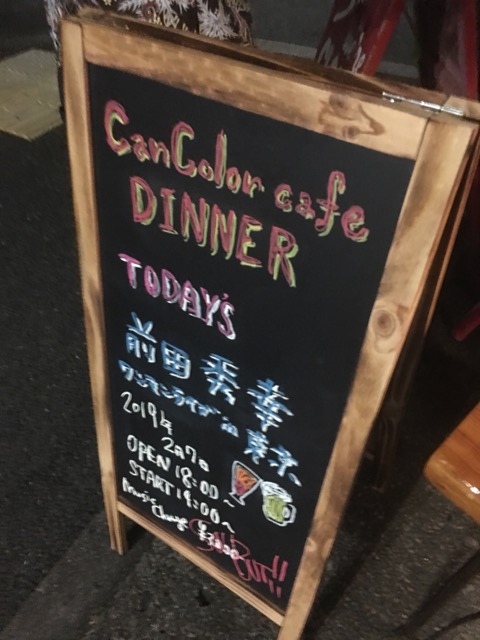 CanColor cafe
DINNER
TODAY'S
前田 秀幸
ワンマンライブ in 東京、
2019年
2月7日
OPEN 18:00~
START 19:00~
Music
Charge
OUT!!